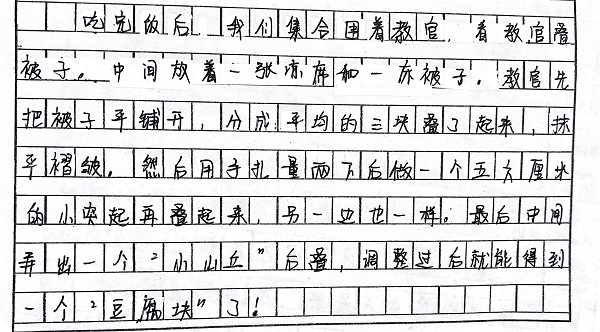 吃完饭后,我们集合围着教官,看教官叠
被子。中间放着一张凉席和一床被子。教官先
把被子平铺开,分成平均的三块叠了起来,抹
平褶皱。然后用手扎量两下后做一个五六厘米
的小突起再叠起来,另一边也一样。最后中间
弄出一个“小山丘”后叠,调整过后就能得到
一个“豆腐块”了!